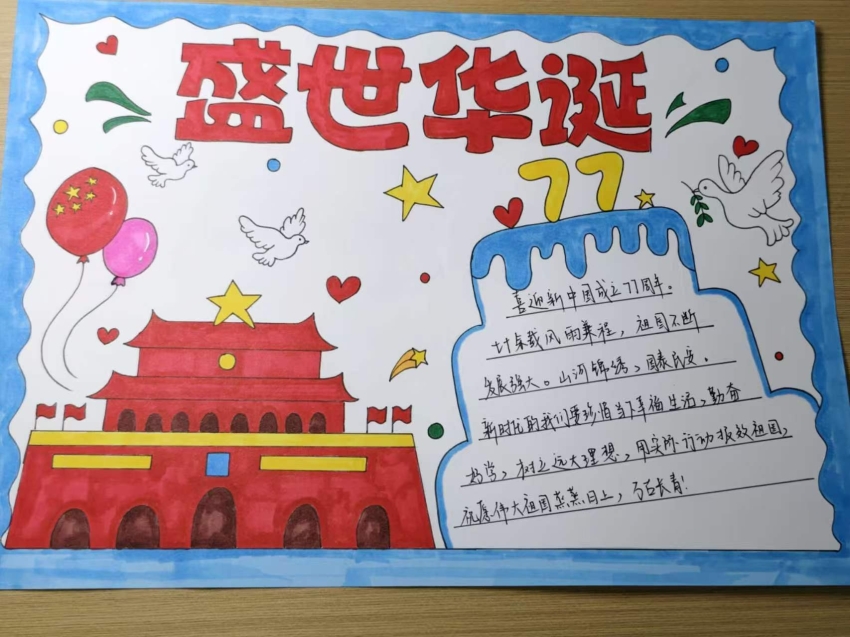 盛世华诞
77
喜迎新中国成立77周年。
计桌载风雨兼程，祖国不断
发展强大。山河锦绣，国泰民安。
新时代的我们要珍惜当下幸福生活，勤奋
好学，树立远大理想，用实际行动报效祖国，
祝愿伟大祖国蒸蒸日上，万古长青！